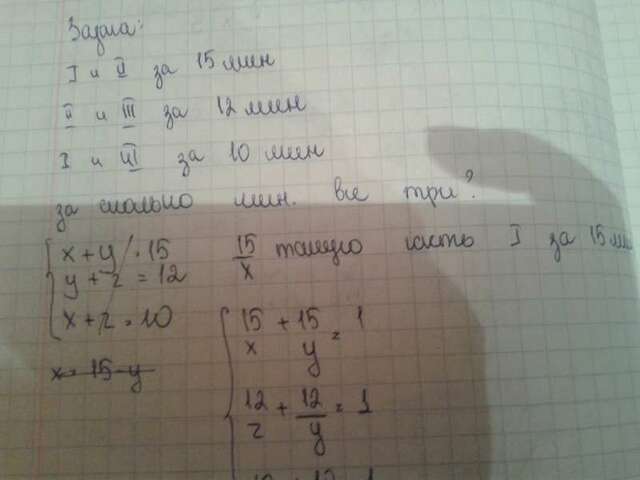 Задача:
I и II за 15 мин
II и III за 12 мин
I и III за 10 мин
за сколько мин. все три?
{ x + y = 15
y + z = 12
x + z = 10
x = 15 - y
15/x часть I за 15
{ 15/x + 15/y = 1
12/z + 12/y = 1